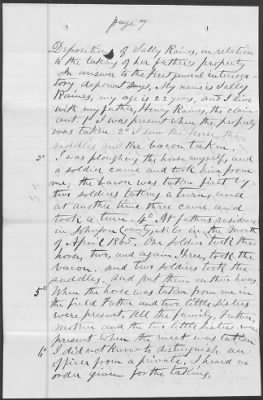 page 7
Deposition of Sally Raines, in relation
to the taking of her father's property
In answer to the first general interroga-
tory, deponent says, My name is Sally
Raines, my age is 22 years, and I live
with my father, Henry Raines, the claim-
ant. 1st I was present when the property
was taken 2d I saw the horse, the
saddles and the bacon taken.
3d I was ploughing the horse myself, and
a soldier came and took him from
me. the bacon was taken first by
two soldiers taking a turn, and
at another time three came and
took a turn. 4th At father's residence
in Johnston County, N.C. in the month
of April 1865. One soldier took the
horse, two, and again three, took the
bacon. and two soldiers took the
saddles. And put them on their horses
5th When the horse was taken from me in
the field Father and two little Sisters
were present. All the family, Father,
Mother and the two little Sisters were
present when the meat was taken
6th I did not know to distinguish an
officer from a private. I heard no
order given for the taking.